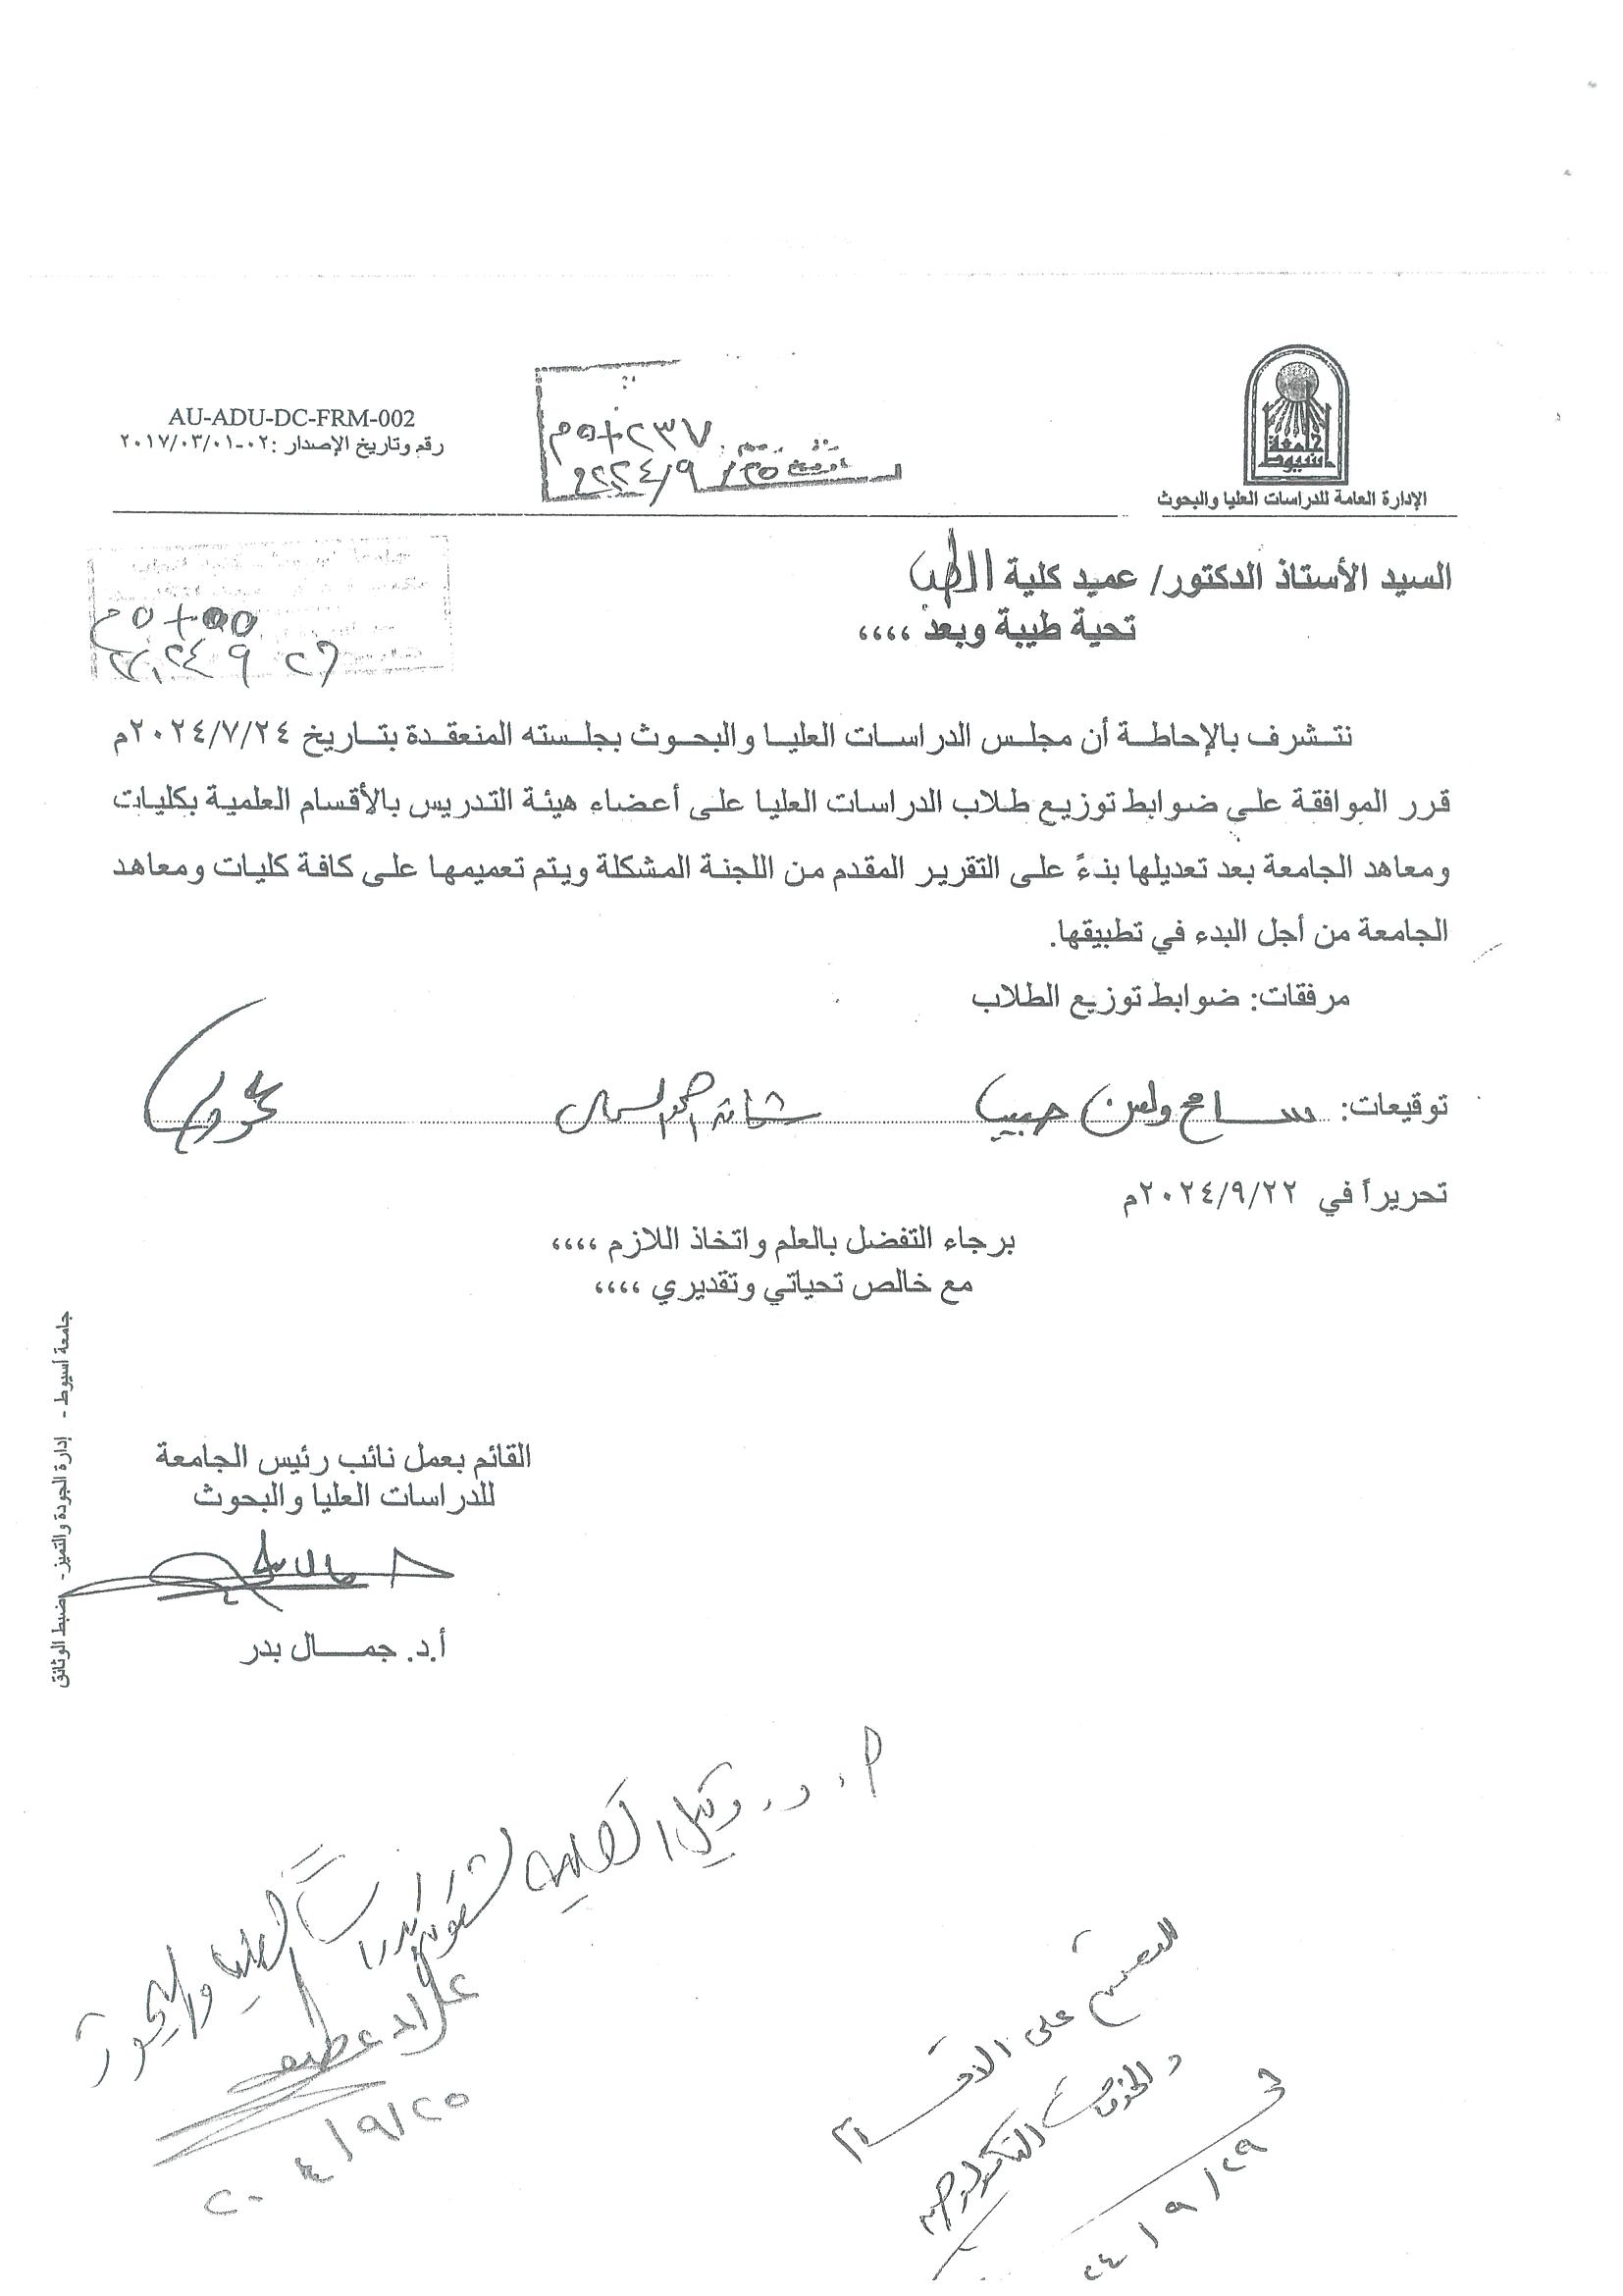 AU-ADU-DC-FRM-002
رقم وتاريخ الإصدار :٠٢-٢٠١٧/٠٣/٠١
جامعة أسيوط
الإدارة العامة للدراسات العليا والبحوث
٢٠٢٤/٩/٢٥
السيد الأستاذ الدكتور/ عميد كلية الطب
تحية طيبة وبعد ،،،،
٢٠٢٤ ٩ ٢٦
نتشرف بالإحاطة أن مجلس الدراسات العليا والبحوث بجلسته المنعقدة بتاريخ ٢٠٢٤/٧/٢٤م
قرر الموافقة علي ضوابط توزيع طلاب الدراسات العليا على أعضاء هيئة التدريس بالأقسام العلمية بكليات
ومعاهد الجامعة بعد تعديلها بنءً على التقرير المقدم من اللجنة المشكلة ويتم تعميمها على كافة كليات ومعاهد
الجامعة من أجل البدء في تطبيقها.
مرفقات: ضوابط توزيع الطلاب
توقيعات: سامح وليم حبيب
تحريراً في ٢٠٢٤/٩/٢٢م
برجاء التفضل بالعلم واتخاذ اللازم ،،،،
مع خالص تحياتي وتقديري ،،،،
القائم بعمل نائب رئيس الجامعة
للدراسات العليا والبحوث
أ.د. جمـــال بدر
جامعة أسيوط - إدارة الجودة والتميز- ضبط الوثائق
أ.د. وكيل الكلية لشئون الدراسات العليا والبحوث
علاء عطية
٢٠٢٤/٩/٢٥
على الأقسام
٢٤/٩/٢٩